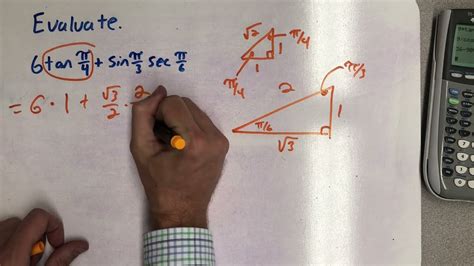 Evaluate.
6 tan π/4 + sin π/3 sec π/6
= 6 · 1 + √3/2 · 2
√2 π/4
1
1
π/4
2 π/3
1
π/6
√3